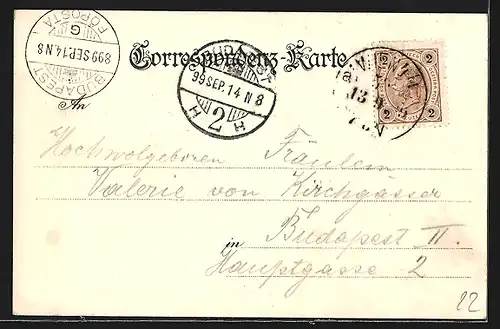 Correspondenz-Karte
BUDAPEST
FŐPOSTA
899 SEP. 14 N 8
G
BUDAPEST
99 SEP. 14 N 8
H 2 H
2 2
2 2
13
An
Hochwolgeboren Fräulein
Valerie von Kirchgasser
in Budapest II.
Hauptgasse 2
22